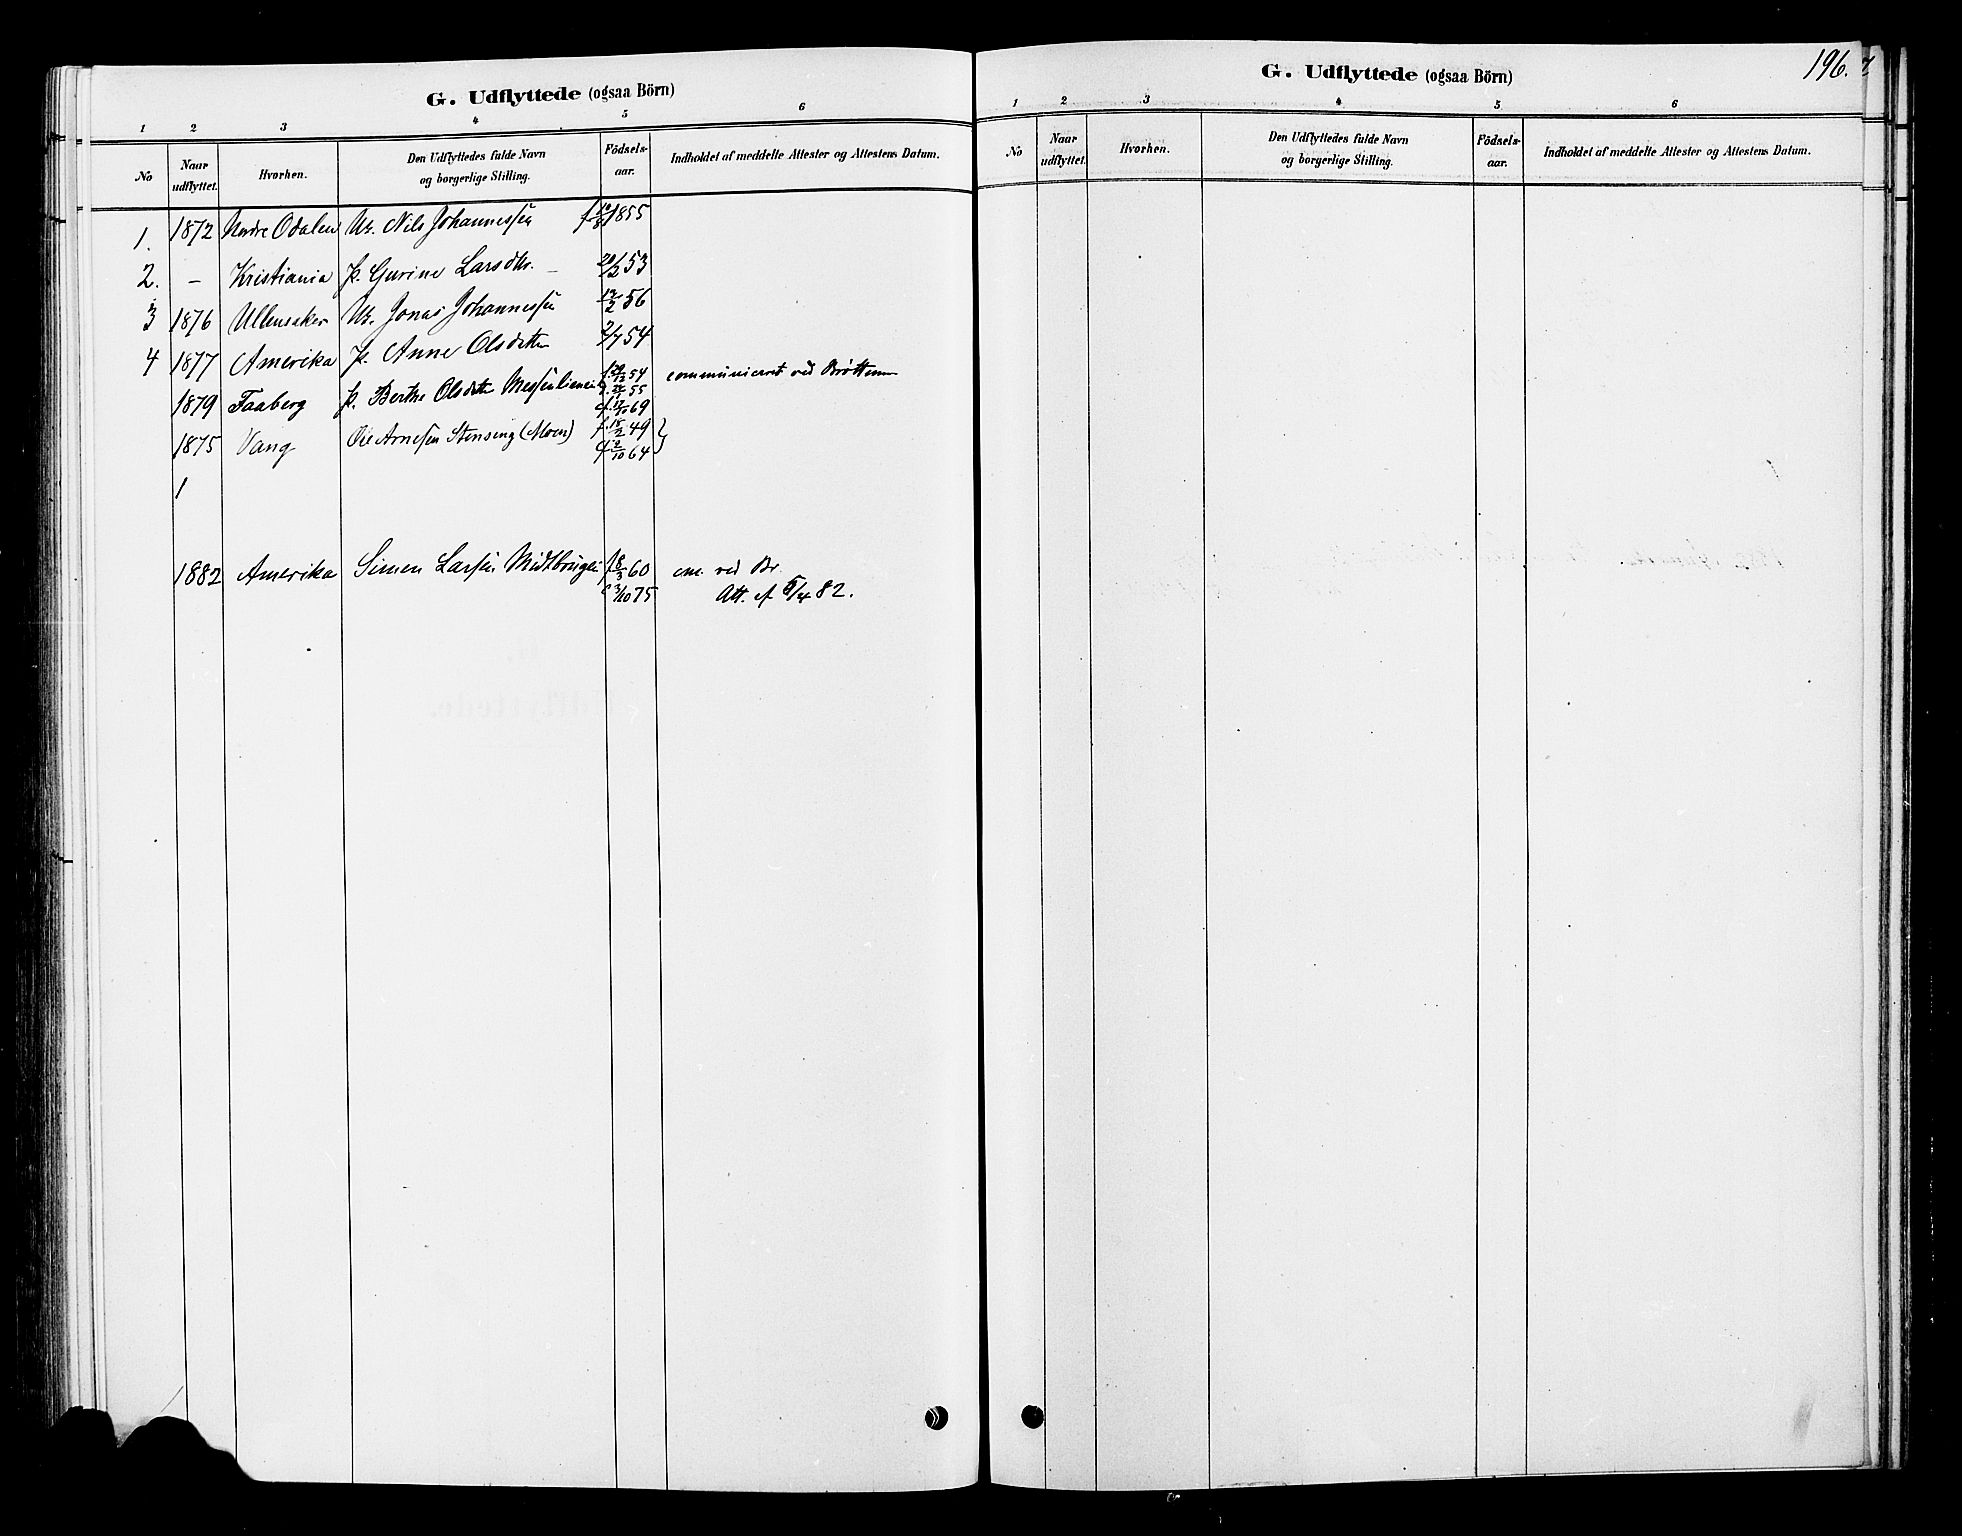 G. Udflyttede (ogsaa Börn)
1 2 3 4 5 6
No Naar udflyttet. Hvorhen. Den Udflyttedes fulde Navn og borgerlige Stilling. Födsels-aar. Indholdet af meddelte Attester og Attestens Datum.
1. 1872 Nordre Odalen Nils Johannessen 1855
2. – Kristiania P. Gurine Larsdtr. 53
3 1876 Ullensaker Jonas Johannessen 56
4 1877 Amerika P. Anne Olsdatter 2/7 54
1879 Faaberg P. Berthe Olsdatter f. 54 communiceret ved Brøttum
55
69
1875 Vang Ole Arnesen Stenseng (Moen) f. 18/2 49
64
1
1882 Amerika Simen Larsen f 8/3 60 cm. ved Br.
c 3/10 75 Att. af 5/4 82.
196.
G. Udflyttede (ogsaa Börn)
1 2 3 4 5 6
No Naar udflyttet. Hvorhen. Den Udflyttedes fulde Navn og borgerlige Stilling. Födsels-aar. Indholdet af meddelte Attester og Attestens Datum.